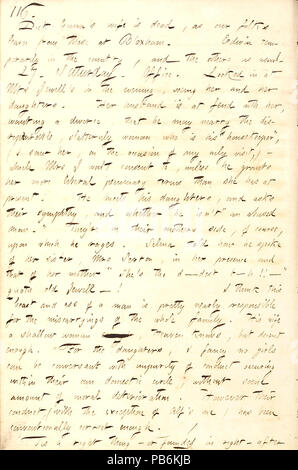 116
Dick Gunn's wife is dead, as our folks
learn from those at Bloxham. Edwin tem-
porarily in the country, and the others as usual.
29. Saturday. Office. Looked in at
Mrs Jewell's in the evening, seeing her and her
daughters. Her husband is at feud with her,
wanting a divorce that he may marry the dis-
reputable, slatternly woman who is his "housekeeper,"
(I saw her on the occasion of my only visit,)
which Mrs J won't consent to, unless he grants
her more liberal pecuniary terms than she has at
present. He meets his daughters, and asks
their sympathy, and whether he "isn't an abused
man." They take their mother's side, of course,
upon which he raged. Selina told how he spoke
of her sister, Mrs Sexton, in her presence and
that of her mother. "She's the d—dest b—h!!"
quoth old Jewell—! I think this
beast and ass of a man is pretty nearly responsible
for the miscarryings of the whole family. His wife
a shallow woman Heaven knows, but decent
enough. For the daughters, I fancy no girls
can be conversant with impurity of conduct occurring
within their own domestic circle, without some
amount of moral deterioration. However their
conduct (with the exception of Alf's one) has been
conventionally correct enough.
'Tis a right thing—or founded in right—after
alamy
Image ID: PB6KJB
www.alamy.com